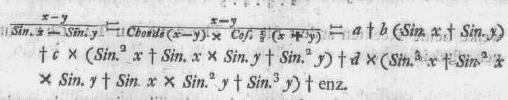 x−y / Sin. x − Sin. y = x−y / Chorde (x−y) × Cos. ½ (x + y) = a † b (Sin. x † Sin. y)
† c × (Sin.² x † Sin. x × Sin. y † Sin.² y) † d × (Sin.³ x † Sin.² x
× Sin. y † Sin. x × Sin.² y † Sin.³ y) † enz.